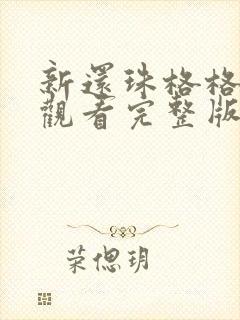 新還珠格格
觀看完整版
荣偲玥